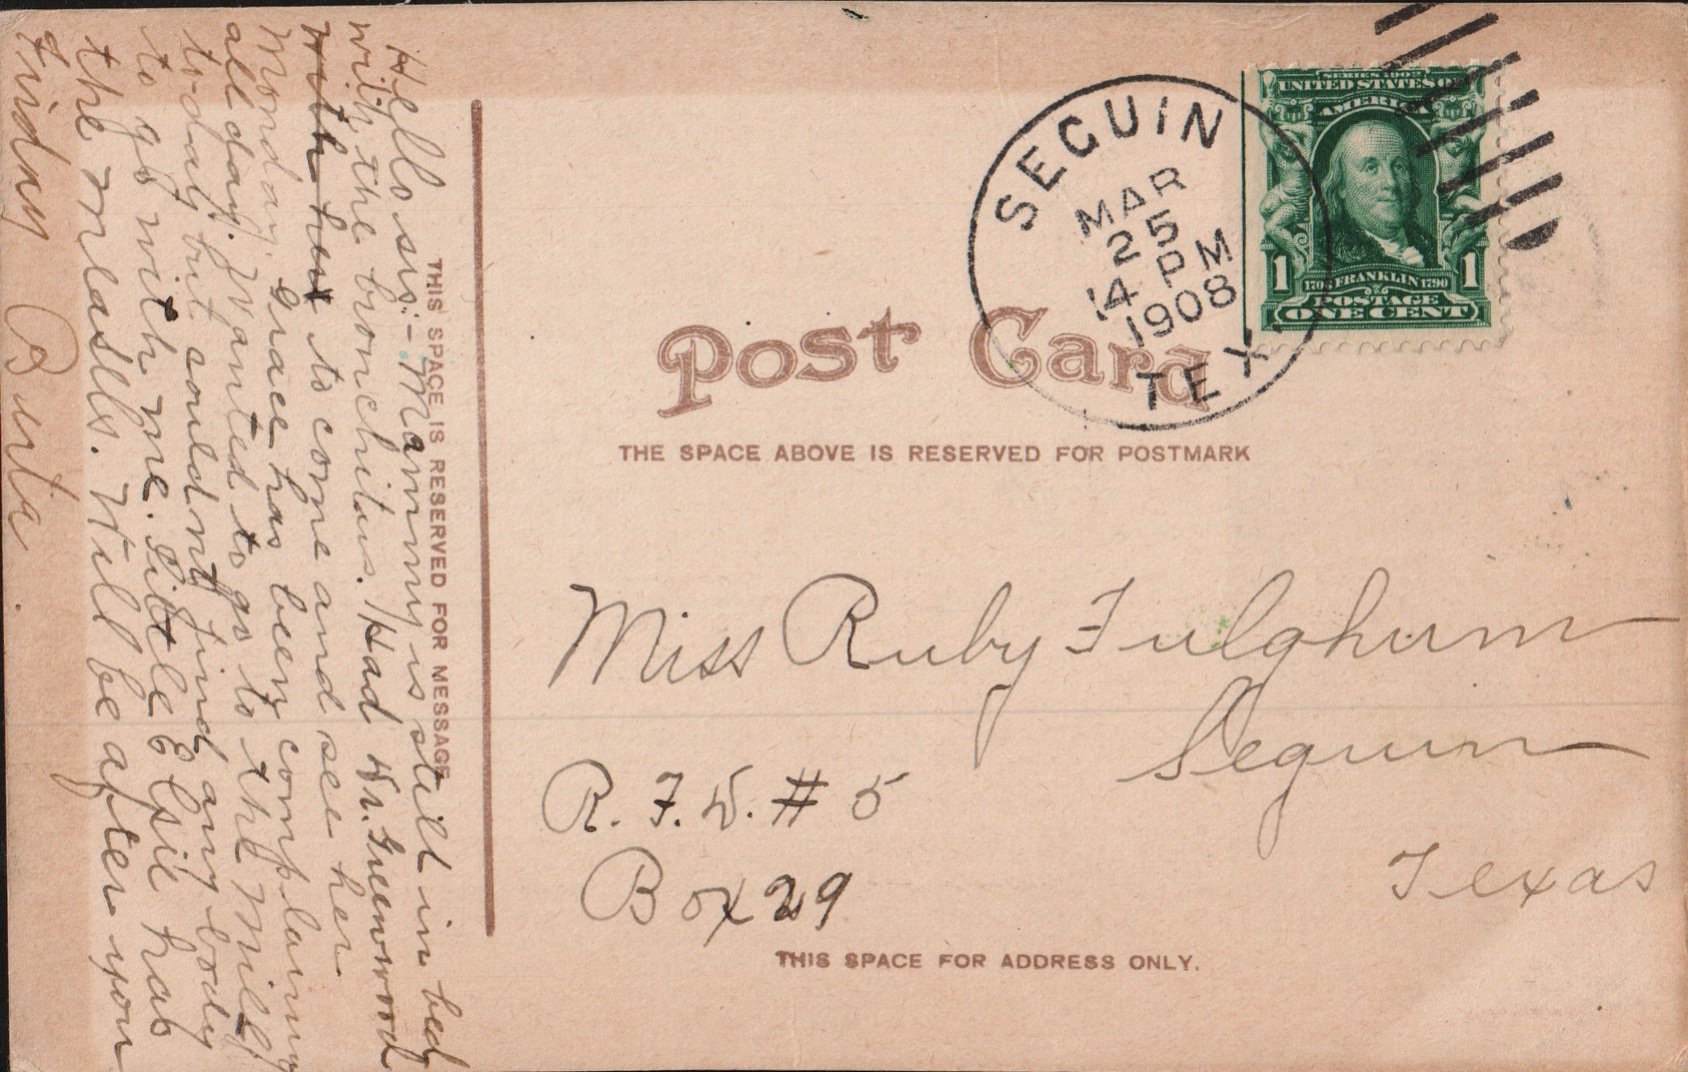 Hello sis:- Mammy is still in bed
with the bronchitus. Had Dr. Greenwood
with her to come and see her
Monday. Grace has been complaining
all day. Wanted to go to the Mill
to-day but couldnt find any body
to go with me. Little Elsie has
the measles. Will be after you
Friday Burta.
THIS SPACE IS RESERVED FOR MESSAGE
SEGUIN
MAR
25
4 PM
1908
TEX.
SERIES 1902
UNITED STATES OF
AMERICA
1 1706 FRANKLIN 1790 1
POSTAGE
ONE CENT
Post Card
THE SPACE ABOVE IS RESERVED FOR POSTMARK
Miss Ruby Fulghum
Seguin
R.F.D. # 5
Texas
Box 29
THIS SPACE FOR ADDRESS ONLY.